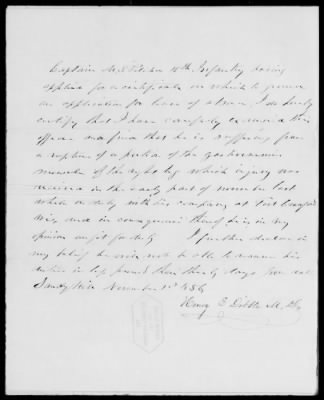 Captain M. 18th Infantry having
applied for a certificate on which to ground
an application for leave of absence, I do hereby
certify that I have carefully examined this
officer and find that he is suffering from
a rupture of a portion of the gastrocnemius
muscle of the right leg which injury was
received in the early part of last
while on duty with his company at Fort
and in consequence thereof he is in my
opinion unfit for duty I further declare in
my belief he will not be able to resume his
duties in less period than thirty days from date
Sandy Hill November 1st
Henry E. M.D.